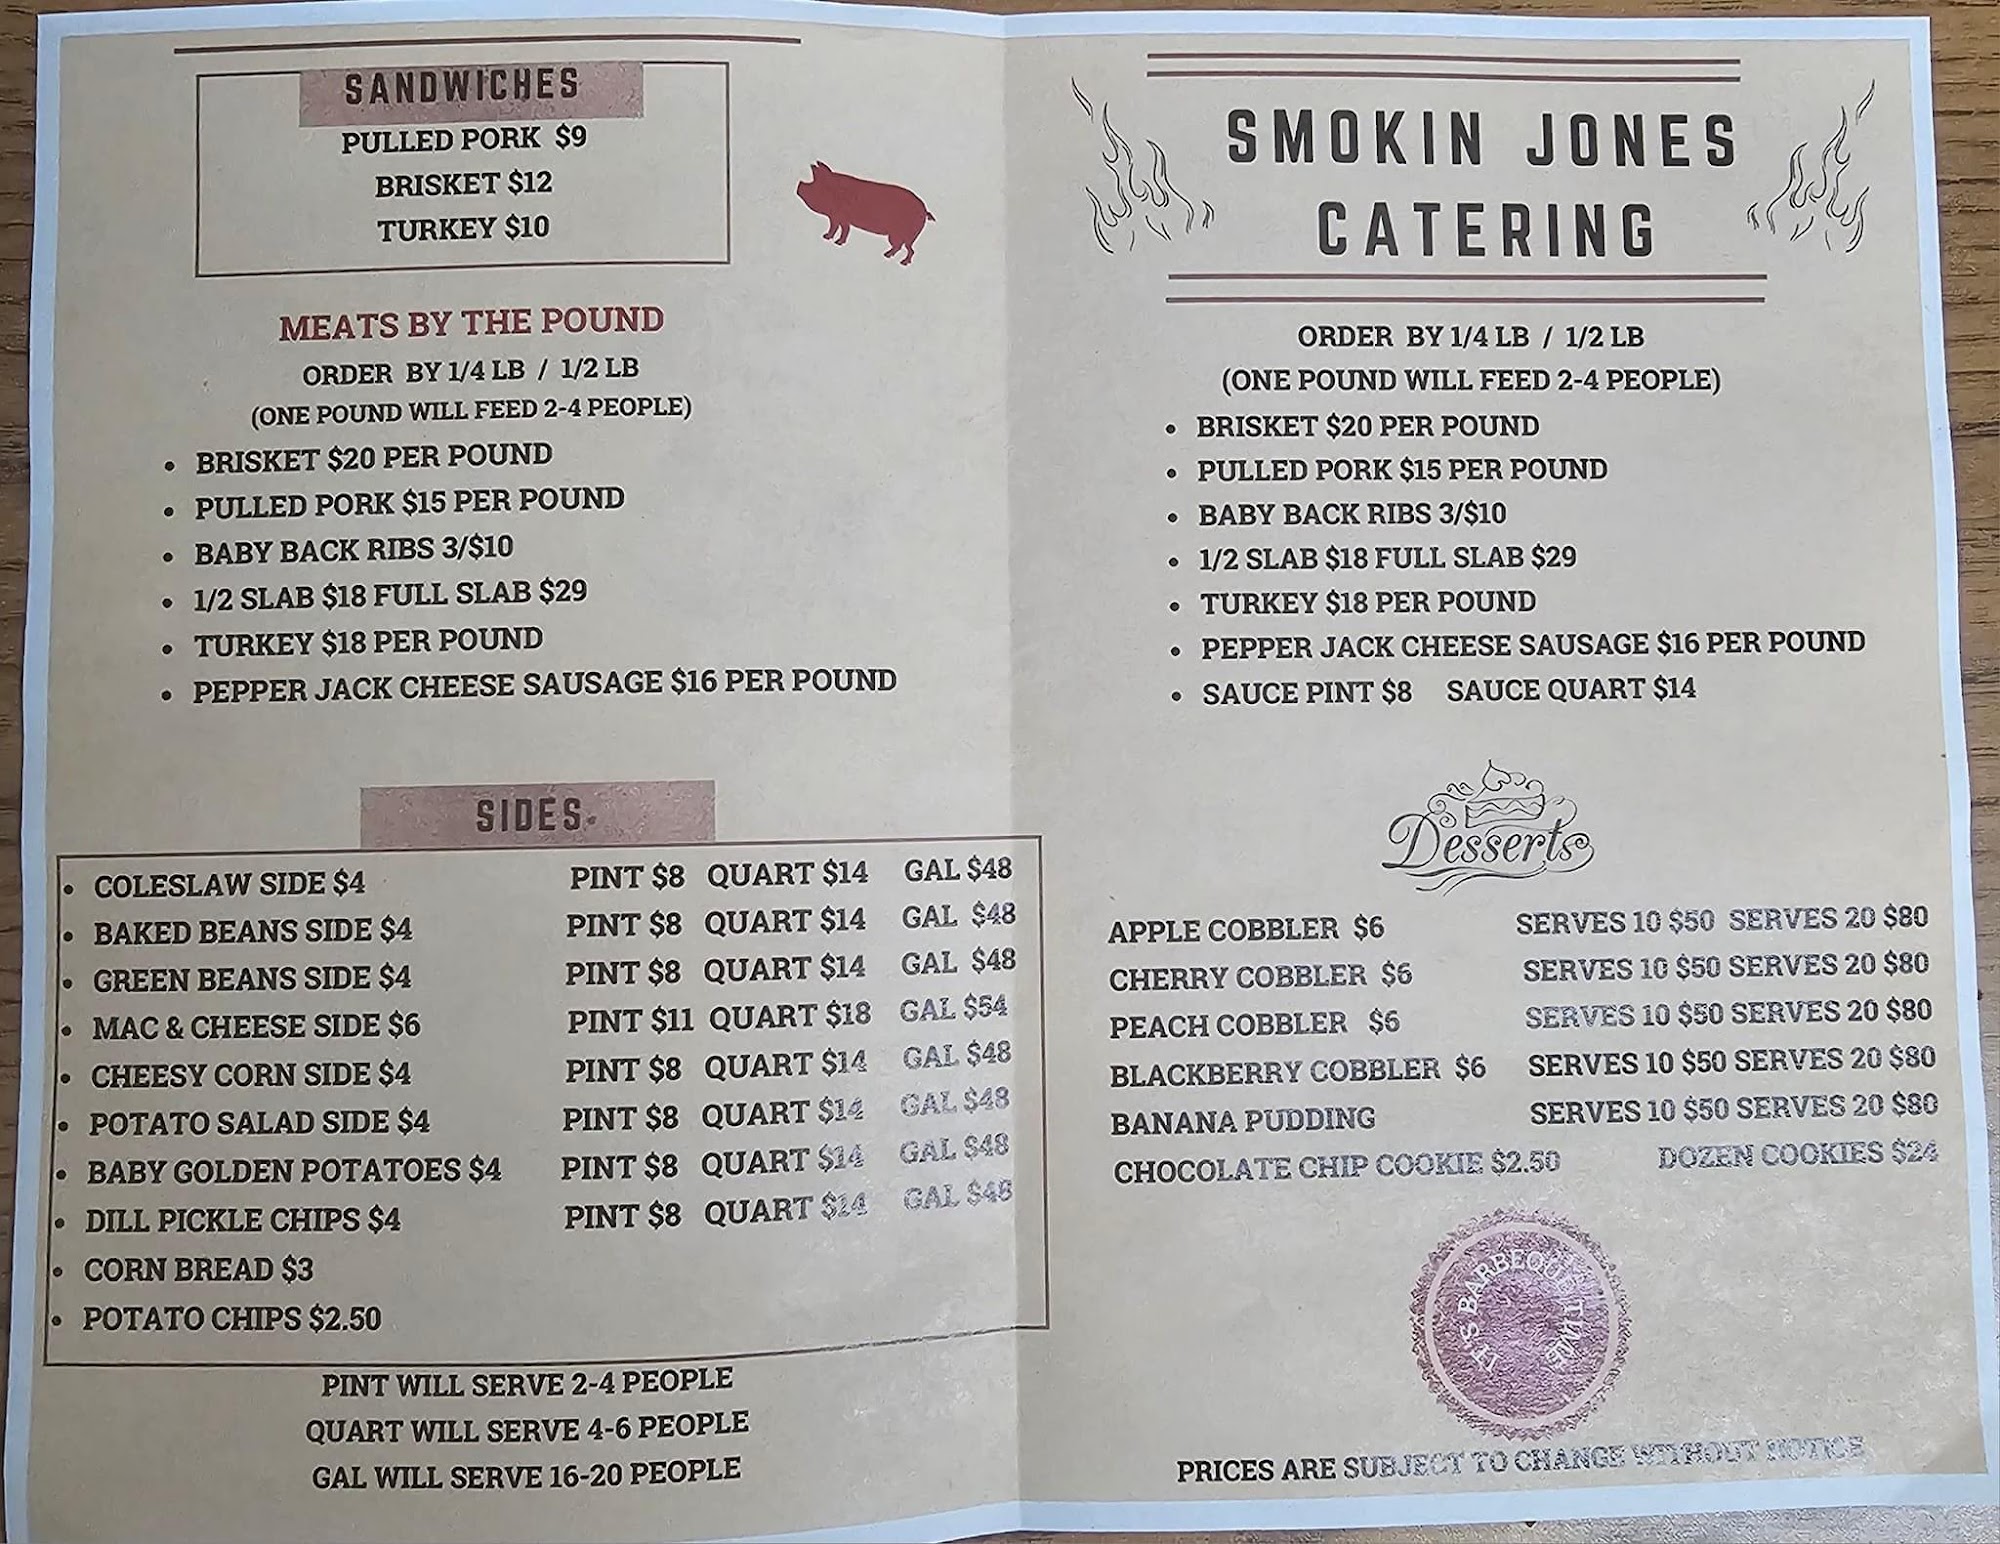 SANDWICHES
PULLED PORK $9
BRISKET $12
TURKEY $10
MEATS BY THE POUND
ORDER BY 1/4 LB / 1/2 LB
(ONE POUND WILL FEED 2-4 PEOPLE)
• BRISKET $20 PER POUND
• PULLED PORK $15 PER POUND
• BABY BACK RIBS 3/$10
• 1/2 SLAB $18 FULL SLAB $29
• TURKEY $18 PER POUND
• PEPPER JACK CHEESE SAUSAGE $16 PER POUND
SIDES
• COLESLAW SIDE $4 PINT $8 QUART $14 GAL $48
• BAKED BEANS SIDE $4 PINT $8 QUART $14 GAL $48
• GREEN BEANS SIDE $4 PINT $8 QUART $14 GAL $48
• MAC & CHEESE SIDE $6 PINT $11 QUART $18 GAL $54
• CHEESY CORN SIDE $4 PINT $8 QUART $14 GAL $48
• POTATO SALAD SIDE $4 PINT $8 QUART $14 GAL $48
• BABY GOLDEN POTATOES $4 PINT $8 QUART $14 GAL $48
• DILL PICKLE CHIPS $4 PINT $8 QUART $14 GAL $48
• CORN BREAD $3
• POTATO CHIPS $2.50
PINT WILL SERVE 2-4 PEOPLE
QUART WILL SERVE 4-6 PEOPLE
GAL WILL SERVE 16-20 PEOPLE
SMOKIN JONES
CATERING
ORDER BY 1/4 LB / 1/2 LB
(ONE POUND WILL FEED 2-4 PEOPLE)
• BRISKET $20 PER POUND
• PULLED PORK $15 PER POUND
• BABY BACK RIBS 3/$10
• 1/2 SLAB $18 FULL SLAB $29
• TURKEY $18 PER POUND
• PEPPER JACK CHEESE SAUSAGE $16 PER POUND
• SAUCE PINT $8 SAUCE QUART $14
Desserts
APPLE COBBLER $6 SERVES 10 $50 SERVES 20 $80
CHERRY COBBLER $6 SERVES 10 $50 SERVES 20 $80
PEACH COBBLER $6 SERVES 10 $50 SERVES 20 $80
BLACKBERRY COBBLER $6 SERVES 10 $50 SERVES 20 $80
BANANA PUDDING SERVES 10 $50 SERVES 20 $80
CHOCOLATE CHIP COOKIE $2.50 DOZEN COOKIES $24
IT'S BARBEQUE TIME
PRICES ARE SUBJECT TO CHANGE WITHOUT NOTICE